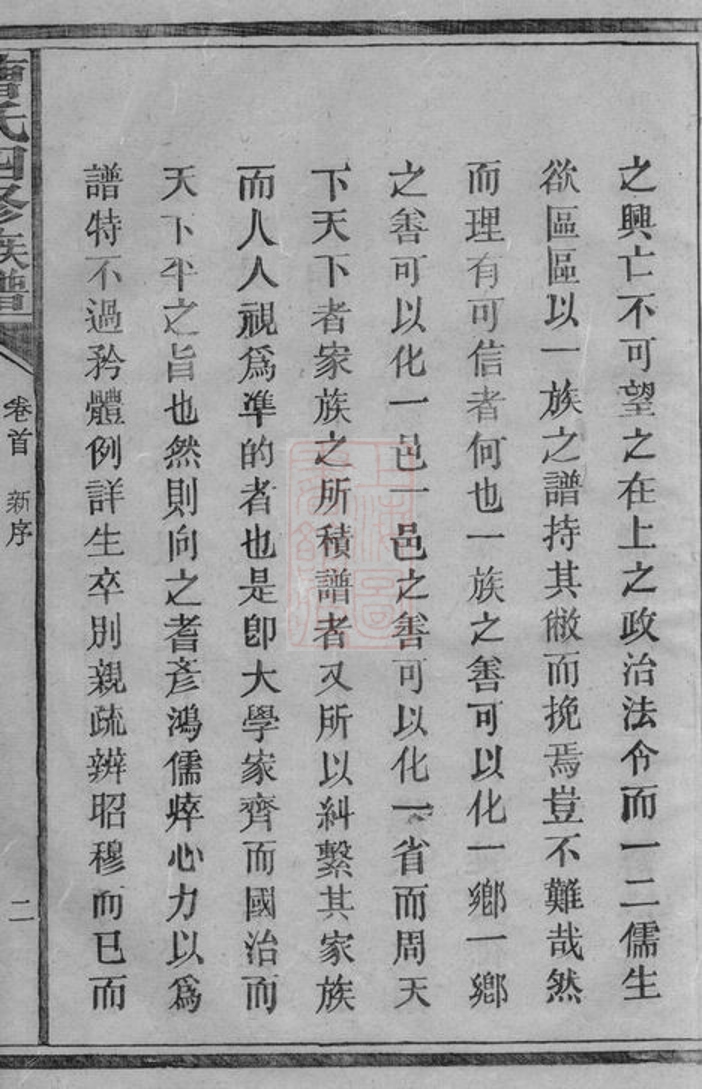 之興亡不可望之在上之政治法令而一二儒生
欲區區以一族之譜持其敝而挽焉豈不難哉然
而理有可信者何也一族之善可以化一鄉一鄉
之善可以化一邑一邑之善可以化一省而周天
下天下者家族之所積譜者又所以糾繫其家族
而人人視爲準的者也是卽大學家齊而國治而
天下平之旨也然則向之耆彥鴻儒瘁心力以爲
譜特不過矜體例詳生卒別親疏辨昭穆而已而
曹氏四修族譜
卷首 新序
二